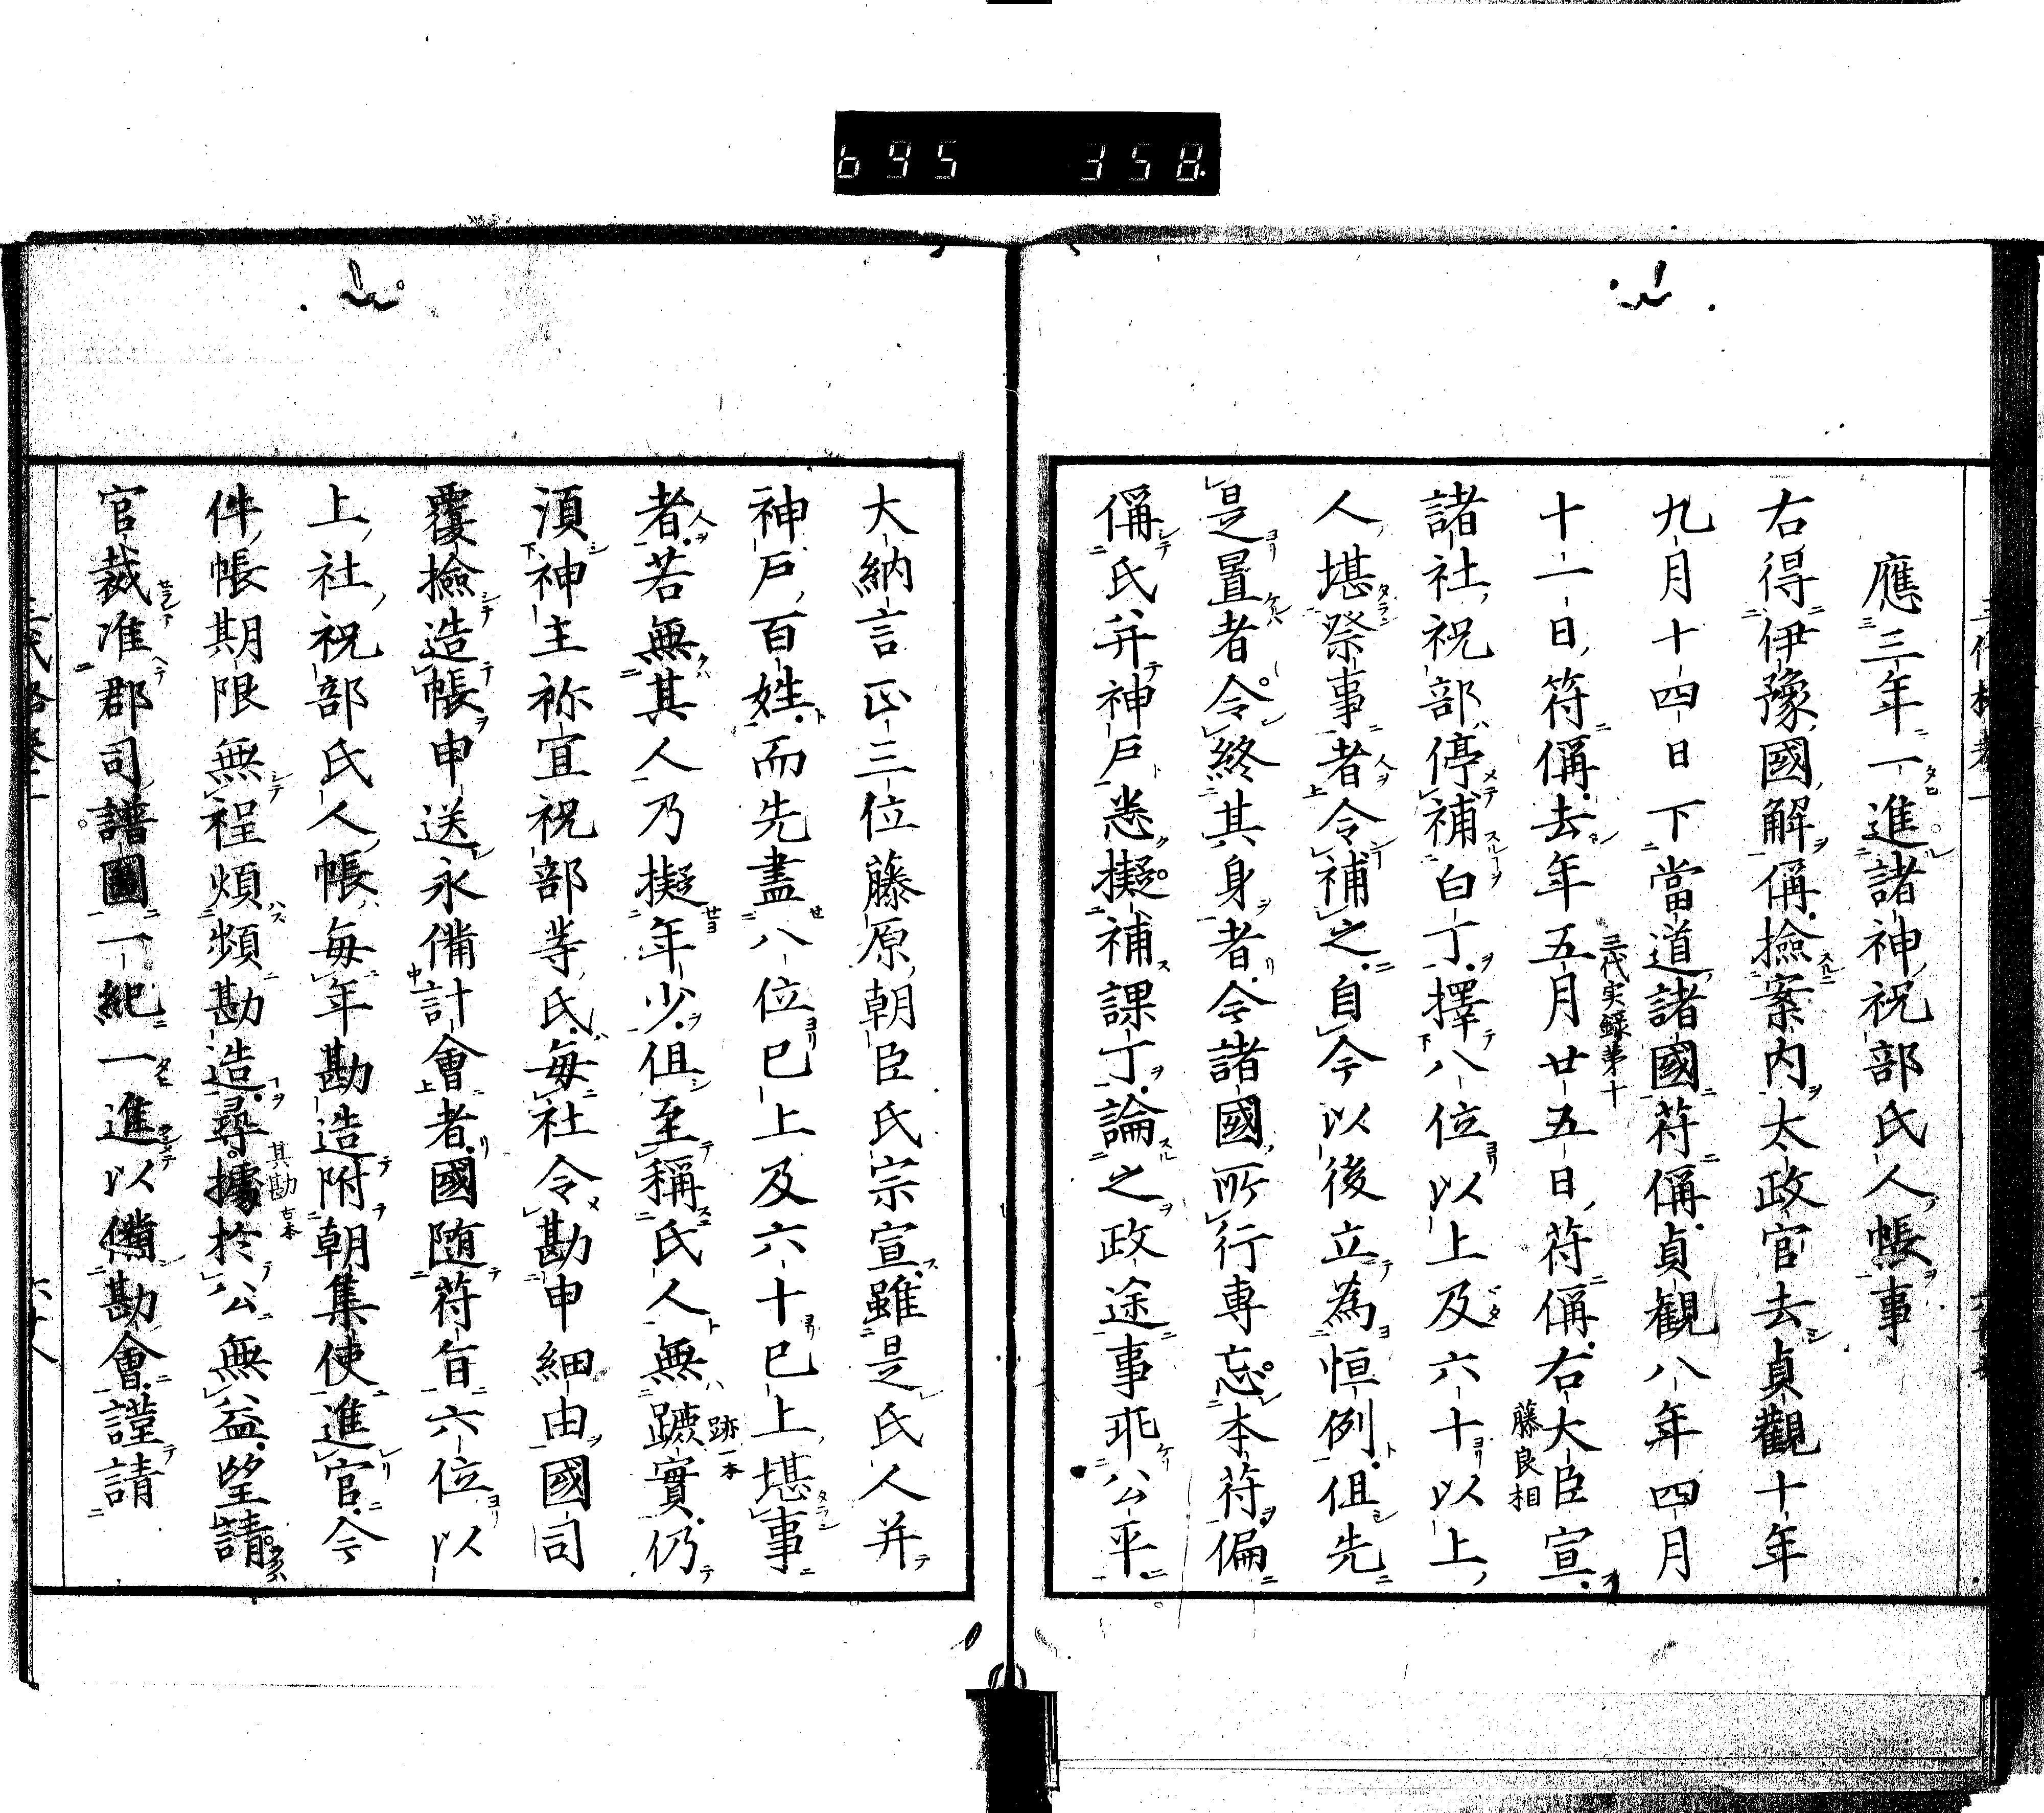 695 358.
應三年一進諸神祝部氏人帳事
右得伊豫國解偁撿案内太政官去貞觀十年
九月十四日下當道諸國符偁貞観八年四月
十一日符偁去年五月廿五日符偁右大臣宣
三代実録第十
藤良相
諸社祝部停補白丁擇八位以上及六十以上
人堪祭事者令補之自今以後立為恒例伹先
是置者令終其身者今諸國所行専忘本符偏
偁氏并神戸悉擬補課丁論之政途事乖公平
大納言正三位藤原朝臣氏宗宣雖是氏人并
神戸百姓而先盡八位已上及六十已上堪事
者若無其人乃擬年少伹至稱氏人無蹠實仍
跡一本
湏神主祢宜祝部等氏毎社令勘申細由國司
覆撿造帳申送永備計會者國随符旨六位以
上社祝部氏人帳毎年勘造附朝集使進官今
件帳期限無程煩頻勘造尋據於公無益望請
其勘古本
官裁准郡司譜圖一紀一進以備勘會謹請